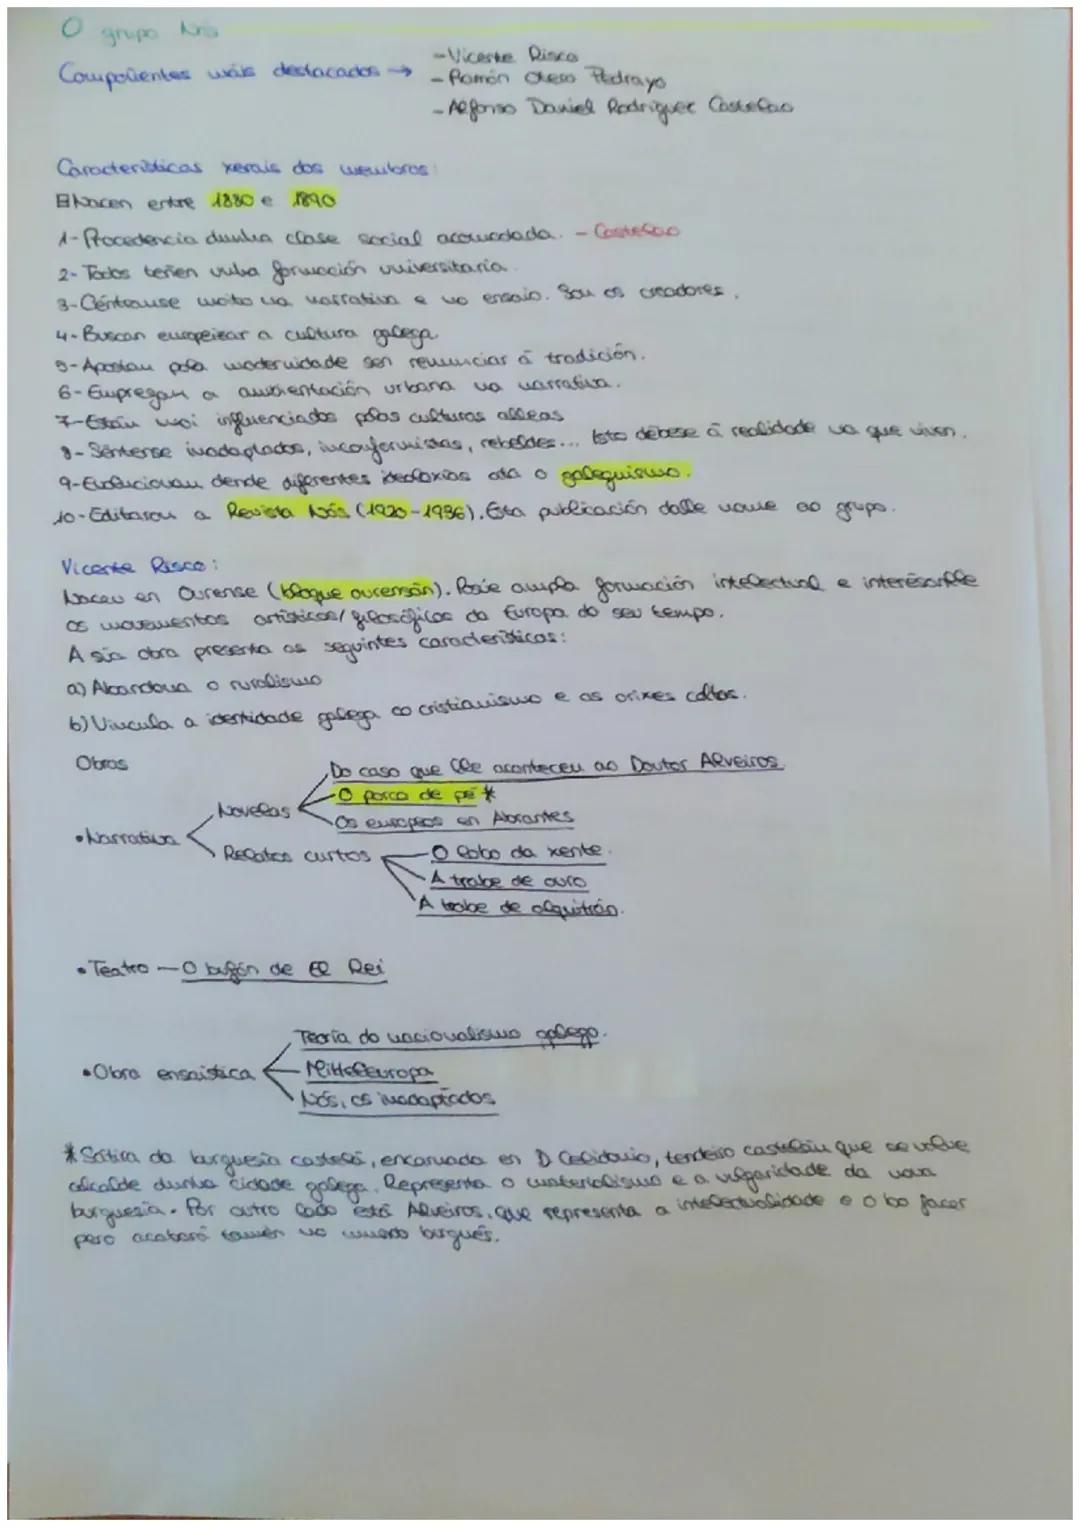 O grupo Nós
Compoñentes máis destacados →
-Vicente Risco
-Ramón Otero Pedrayo
-Alfonso Daniel Rodríguez Castelao
Características xerais dos membros:
Nacen entre 1880 e 1890
1-Procedencia dunha clase social acomodada. - Castelao
2-Todos teñen unha formación universitaria.
3-Céntranse moito na narrativa e no ensaio. Son os creadores.
4-Buscan europeizar a cultura galega.
5-Apostan pola modernidade sen renunciar á tradición.
6-Empregan a ambientación urbana na narrativa.
7-Están moi influenciados polas culturas alleas
8-Séntense inadaptados, inconformistas, rebeldes... Isto débese á realidade na que viven.
9-Evolucionan dende diferentes ideoloxías ata o galeguismo.
10-Editaron a Revista Nós (1920-1936). Esta publicación dalle nome ao grupo.
Vicente Risco:
Naceu en Ourense (bloque ourensán). Posúe ampla formación intelectual e interésanlle
os movementos artísticos/filosóficos da Europa do seu tempo.
A súa obra presenta as seguintes características:
a) Abandona o ruralismo
b) Vincula a identidade galega co cristianismo e as orixes celtas.
Obras
•Narrativa
Novelas
Do caso que lle aconteceu ao Doutor Alveiros
O porco de pé *
Os europeos en Abrantes
Relatos curtos
O lobo da xente.
A trabe de ouro
A trabe de alquitrán.
•Teatro — O bufón de El Rei
•Obra ensaística
Teoría do nacionalismo galego.
Mitteleuropa
Nós, os inadaptados
* Sátira da burguesía castelá, encarnada en D Celidonio, tendeiro castelán que se volve
alcalde dunha cidade galega. Representa o materialismo e a vulgaridade da nova
burguesía. Por outro lado está Alveiros, que representa a intelectualidade e o bo facer
pero acabará tamén no mundo burgués.